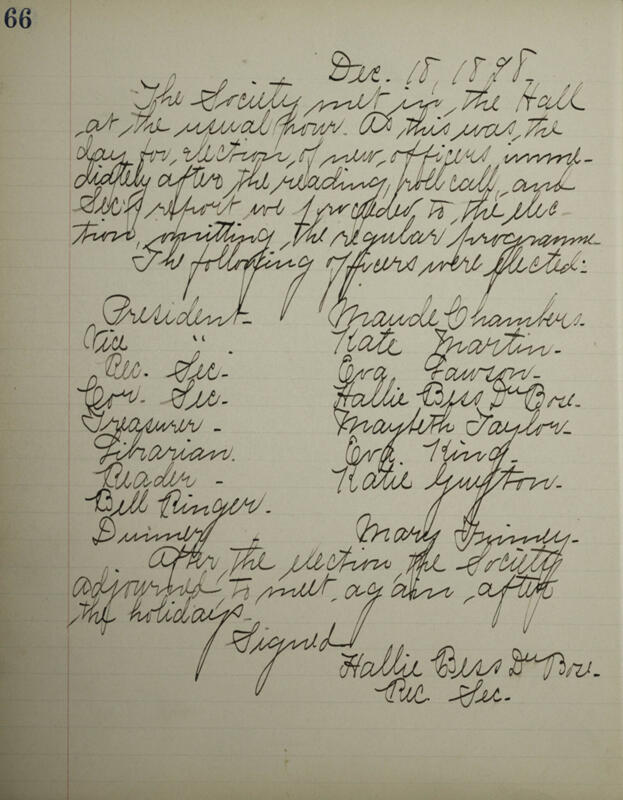 66
Dec. 18, 1898.
The Society met in the Hall
at the usual hour. As this was the
day for election of new officers, imme-
diately after the reading, roll call, and
Sec's report we proceded to the elec-
tion, omitting the regular programme
The following officers were elected:
President- Maude Chambers.
Vice " . Kate Martin-
Rec. Sec- Eva Lawson-
Cor. Sec- Hallie Bess DuBose-
Treasurer - Maybeth Taylor-
Librarian. Eva King-
Reader - Katie Guyton-
Bell Ringer.
Dunner Mary
After the election, the Society
adjourned, to meet again after
the holidays.
Signed
Hallie Bess DuBose-
Rec. Sec-